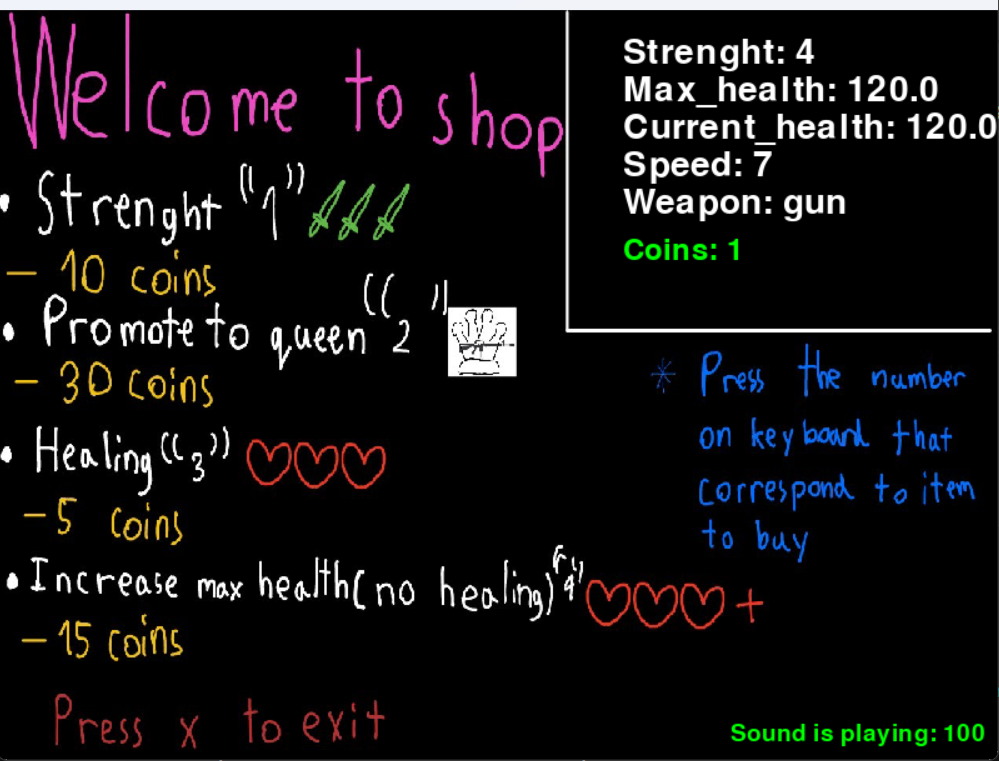 Welcome to shop
• Strenght "1"
- 10 coins
• Promote to queen "2"
- 30 coins
• Healing "3"
- 5 coins
• Increase max health(no healing) "4"
+
- 15 coins
Press x to exit
Strenght: 4
Max_health: 120.0
Current_health: 120.0
Speed: 7
Weapon: gun
Coins: 1
* Press the number
on keyboard that
correspond to item
to buy
Sound is playing: 100